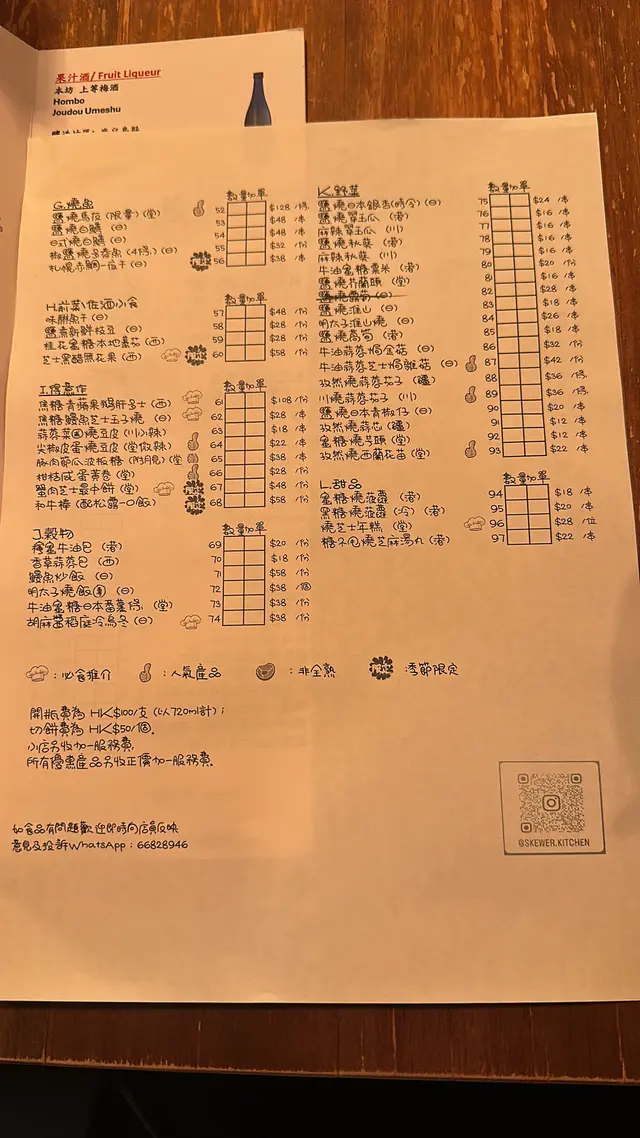 果汁酒/ Fruit Liqueur
本坊 上等梅酒
Hombo
Joudou Umeshu
G.燒魚 數量加單
鹽燒馬友 (限量) (堂) 52 $128 /條
鹽燒白鱔 (日) 53 $48 /本
日式燒白鱔 (日) 54 $48 /本
椒鹽燒多春魚 (4條) (日) 55 $32 /份
札幌赤鯛一夜干 (日) 56 $38 /本
H.前菜\佐酒小食 數量加單
味醂魚干 (日) 57 $48 /份
鹽煮新鮮枝豆 (日) 58 $28 /份
桂花蜜糖本地番茄 (西) 59 $38 /份
芝士黑醋無花果 (西) 60 $58 /份
I.得意作 數量加單
焦糖青蘋果鵝肝多士 (西) 61 $108 /份
焦糖鰻魚芝士玉子燒 (日) 62 $28 /本
蒜蓉菜圃燒豆皮 (川) 小辣 63 $18 /本
尖椒皮蛋燒豆皮 (堂) 微辣 64 $22 /本
豚肉節瓜波板糖 (附月見) (堂) 65 $38 /本
柑桔咸蛋黃卷 (堂) 66 $28 /份
蟹肉芝士最中餅 (堂) 67 $48 /份
和牛棒 (配松露一口飯) 68 $58 /份
J.穀物 數量加單
椎金牛油巴 (港) 69 $20 /份
香草蒜蓉巴 (西) 70 $18 /份
鰻魚炒飯 (日) 71 $58 /份
明太子燒飯團 (日) 72 $38 /個
牛油蜜糖日本番薯條 (堂) 73 $38 /份
胡麻醬稻庭冷烏冬 (日) 74 $38 /份
K.野菜 數量加單
鹽燒日本銀杏 (時令) (日) 75 $24 /本
鹽燒翠玉瓜 (港) 76 $16 /本
麻辣翠玉瓜 (川) 77 $16 /本
鹽燒秋葵 (港) 78 $16 /本
麻辣秋葵 (川) 79 $16 /本
牛油蜜糖粟米 (港) 80 $20 /份
鹽燒芥蘭頭 (堂) 81 $16 /本
鹽燒露筍 (日) 82 $28 /本
鹽燒淮山 (日) 83 $18 /本
明太子淮山燒 (日) 84 $26 /本
鹽燒萵筍 (港) 85 $18 /本
牛油蒜蓉焗金菇 (日) 86 $32 /份
牛油蒜蓉芝士焗雜菇 (日) 87 $42 /份
孜然燒蒜蓉茄子 (疆) 88 $36 /條
川燒蒜蓉茄子 (川) 89 $36 /條
鹽燒日本青椒仔 (日) 90 $20 /本
孜然燒蒜芯 (疆) 91 $12 /本
蜜糖燒芋頭 (堂) 92 $12 /本
孜然燒西蘭花苗 (堂) 93 $22 /本
L.甜品 數量加單
蜜糖燒菠蘿 (港) 94 $18 /本
黑糖燒菠蘿 (冷) (港) 95 $20 /本
燒芝士年糕 (堂) 96 $28 /位
糖不甩燒芝麻湯丸 (港) 97 $22 /本
：必食推介 ：人氣產品 ：非全熟 ：季節限定
開瓶費為 HK$100/支 (以720ml計)；
切餅費為 HK$50/個。
小店另收加一服務費，
所有優惠產品另收正價加一服務費。
如食品有問題歡迎即時向店員反映
意見及投訴WhatsApp：66828946
@SKEWER.KITCHEN